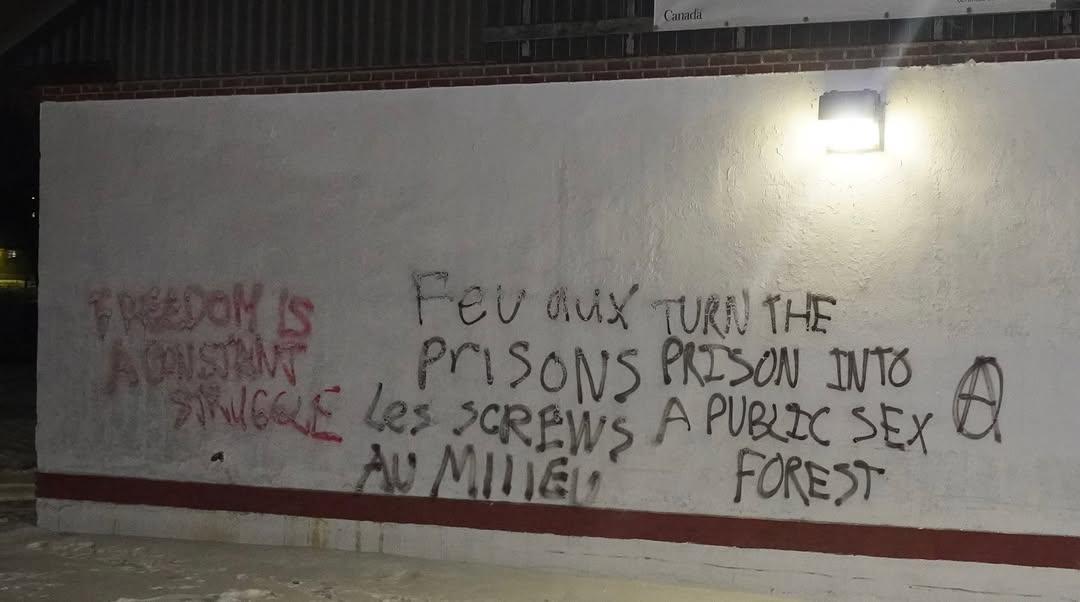 Canada
FREEDOM IS
A CONSTANT
STRUGGLE
Feu aux
PRISONS
Les SCREWS
AU MILIEU
TURN THE
PRISON INTO
A PUBLIC SEX
FOREST
A